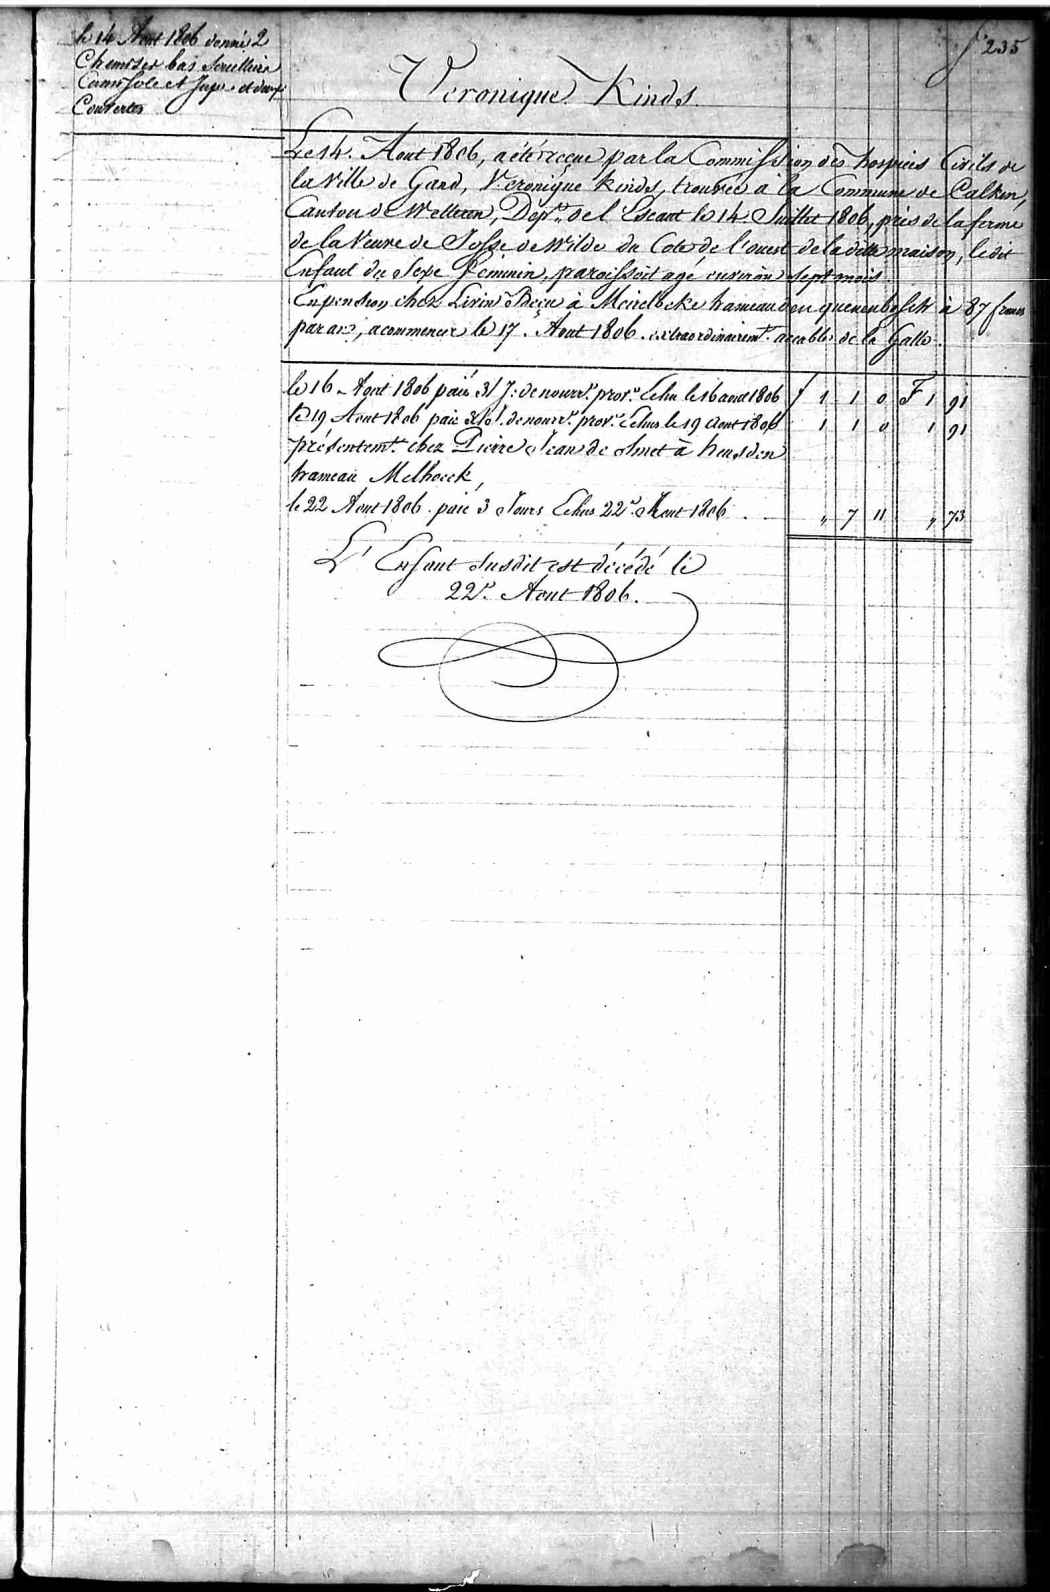 f° 235
le 14 Aout 1806 donné 2
Chemises bas
Camisole et Jupe et deux
Couvertes
Veronique Kinds
Le 14. Aout 1806, a été reçue par la Commission des hospices Civils de
la Ville de Gand, Veronique Kinds, trouvée à la Commune de Calken,
Canton de Wetteren, Dept. de l'Escaut le 14. Juillet 1806, près de la ferme
de la Veuve de Josse de Wilde du Coté de l'ouest de la dette maison, le dit
Enfant du Sexe féminin, paroissoit agé environ sept mois.
En pension chez Livin à Meirelbeke hameau den à 87 francs
par an, a commencer le 17. Aout 1806. extraordinairemt. accablé de la Galle.
le 16 Aout 1806 paié 3/ de nourre. prove. Echu le 16 aout 1806 f 1 1 0 F 1 91
le 19 Aout 1806 paié de nourre. prove. Echus le 19 Aout 1806 1 1 0 1 91
présentemt. chez Pierre Jean de Smet à heusden
hameau Melhoeck,
le 22 Aout 1806. paié 3 Jours Echus 22e. Aout 1806 . - " 7 11 " 73
L'Enfant Susdit est décédé le
22e. Aout 1806.